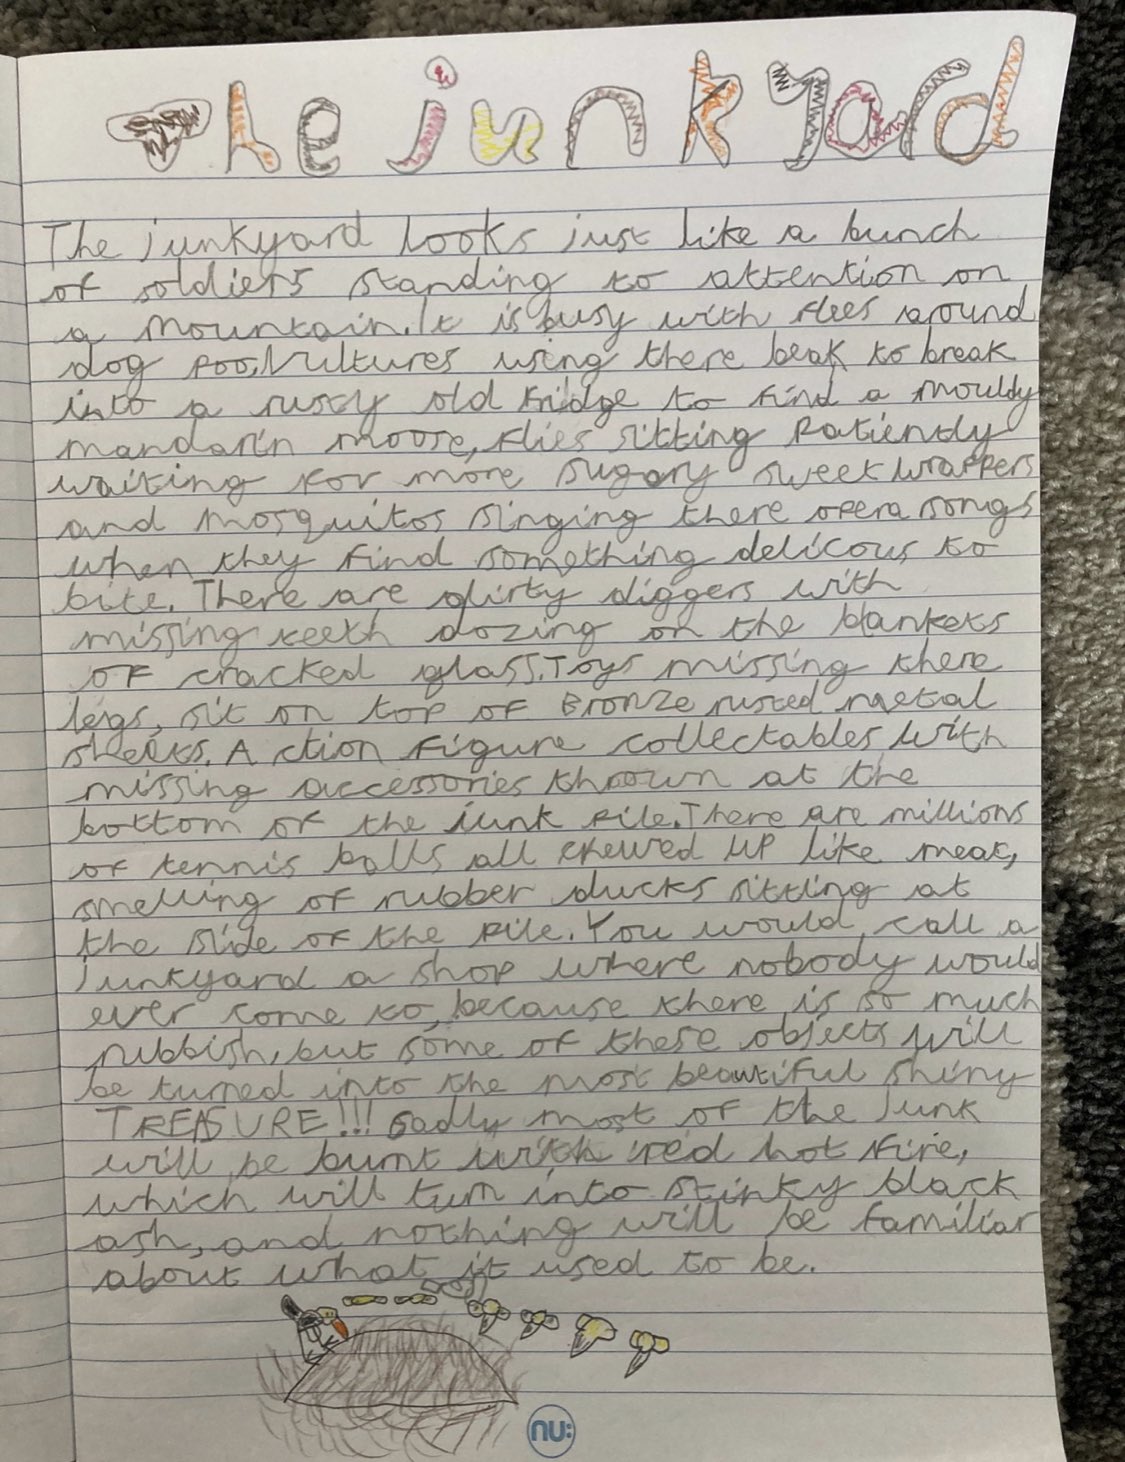 The junkyard
The junkyard looks just like a bunch
of soldiers standing to attention on
a mountain. It is busy with flees around
dog poo, Vultures using there beak to break
into a rusty old fridge to find a mouldy
mandarin moose, flies sitting Patiently
waiting for more sugary sweet wrappers
and mosquitos singing there opera songs
when they find something delicous to
bite. There are dirty diggers with
missing teeth dozing on the blankets
of cracked glass. Toys missing there
legs, sit on top of Bronze rusted metal
sheets. Action figure collectables with
missing accessories thrown at the
bottom of the junk pile. There are millions
of tennis balls all chewed up like meat,
smelling of rubber ducks sitting at
the side of the pile. You would call a
junkyard a shop where nobody would
ever come to, because there is so much
rubbish, but some of these objects will
be turned into the most beautiful shiny
TREASURE!!! Sadly most of the junk
will be burnt with red hot fire,
which will turn into stinky black
ash, and nothing will be familiar
about what it used to be.
nu: